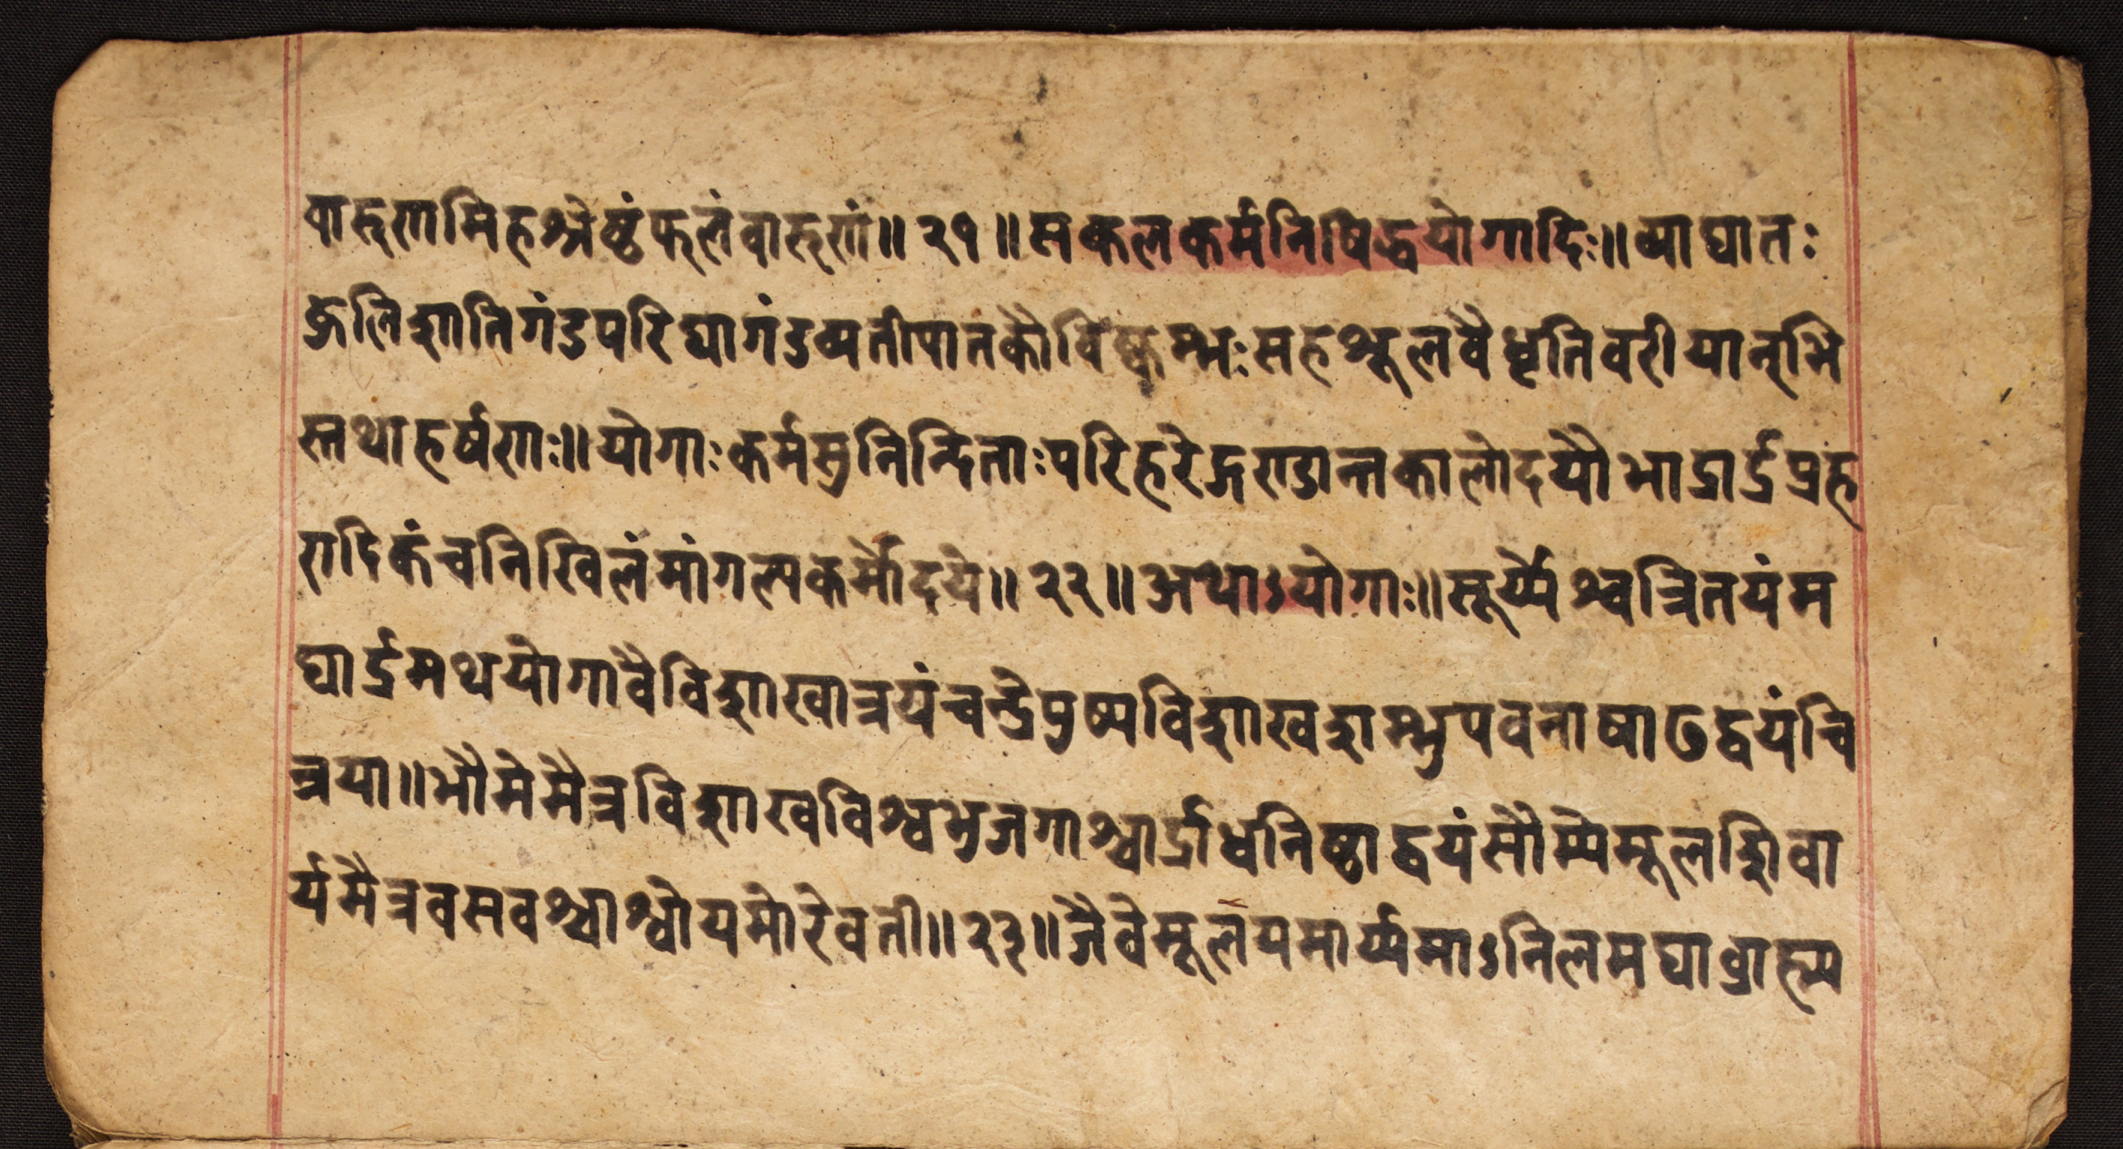 वारुणमिहश्रेष्ठंफलंवारुणं॥२१॥सकलकर्मनिषिद्धयोगादिः॥व्याघातः
कुलिशातिगंडपरिघागंडव्यतीपातकौविष्कम्भःसहश्शूलवैधृतिवरीयान्भि
स्तथाहर्षणः॥योगाःकर्मसुनिन्दिताःपरिहरेद्गण्डान्तकालोदयौभाद्रार्द्रप्रह
रादिकंचनिखिलंमांगल्यकर्मोदये॥२२॥अथाऽयोगाः॥सूर्य्येश्चत्रितयंम
घार्द्रमथयोगावैविशाखात्रयंचन्द्रेपुष्यविशाखशम्भुपवनाषाढद्वयंचि
त्रया॥भौमेमैत्रविशाखविश्वभुजगाश्चार्द्राधनिष्ठाद्वयंसौम्येमूलशिवा
र्यमैत्रवसवश्चाश्वोयमोरेवती॥२३॥जैवेमूलयमार्य्यमाऽनिलमघाब्राह्म्य